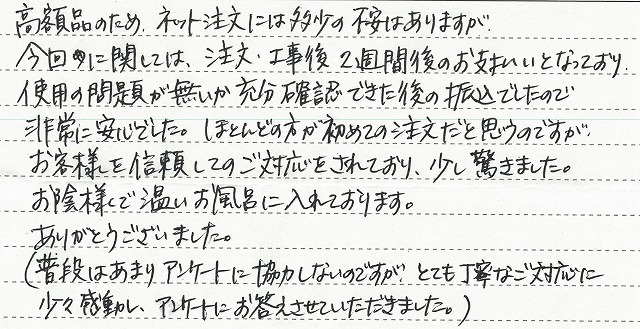 高額品のため、ネット注文には多少の不安はありますが
今回に関しては、注文・工事後2週間後のお支払いとなっており、
使用の問題が無いか充分確認できた後の振込でしたので
非常に安心でした。ほとんどの方が初めての注文だと思うのですが、
お客様を信頼してのご対応をされており、少し驚きました。
お陰様で温いお風呂に入れております。
ありがとうございました。
(普段はあまりアンケートに協力しないのですが、とても丁寧なご対応に
少々感動し、アンケートにお答えさせていただきました。)